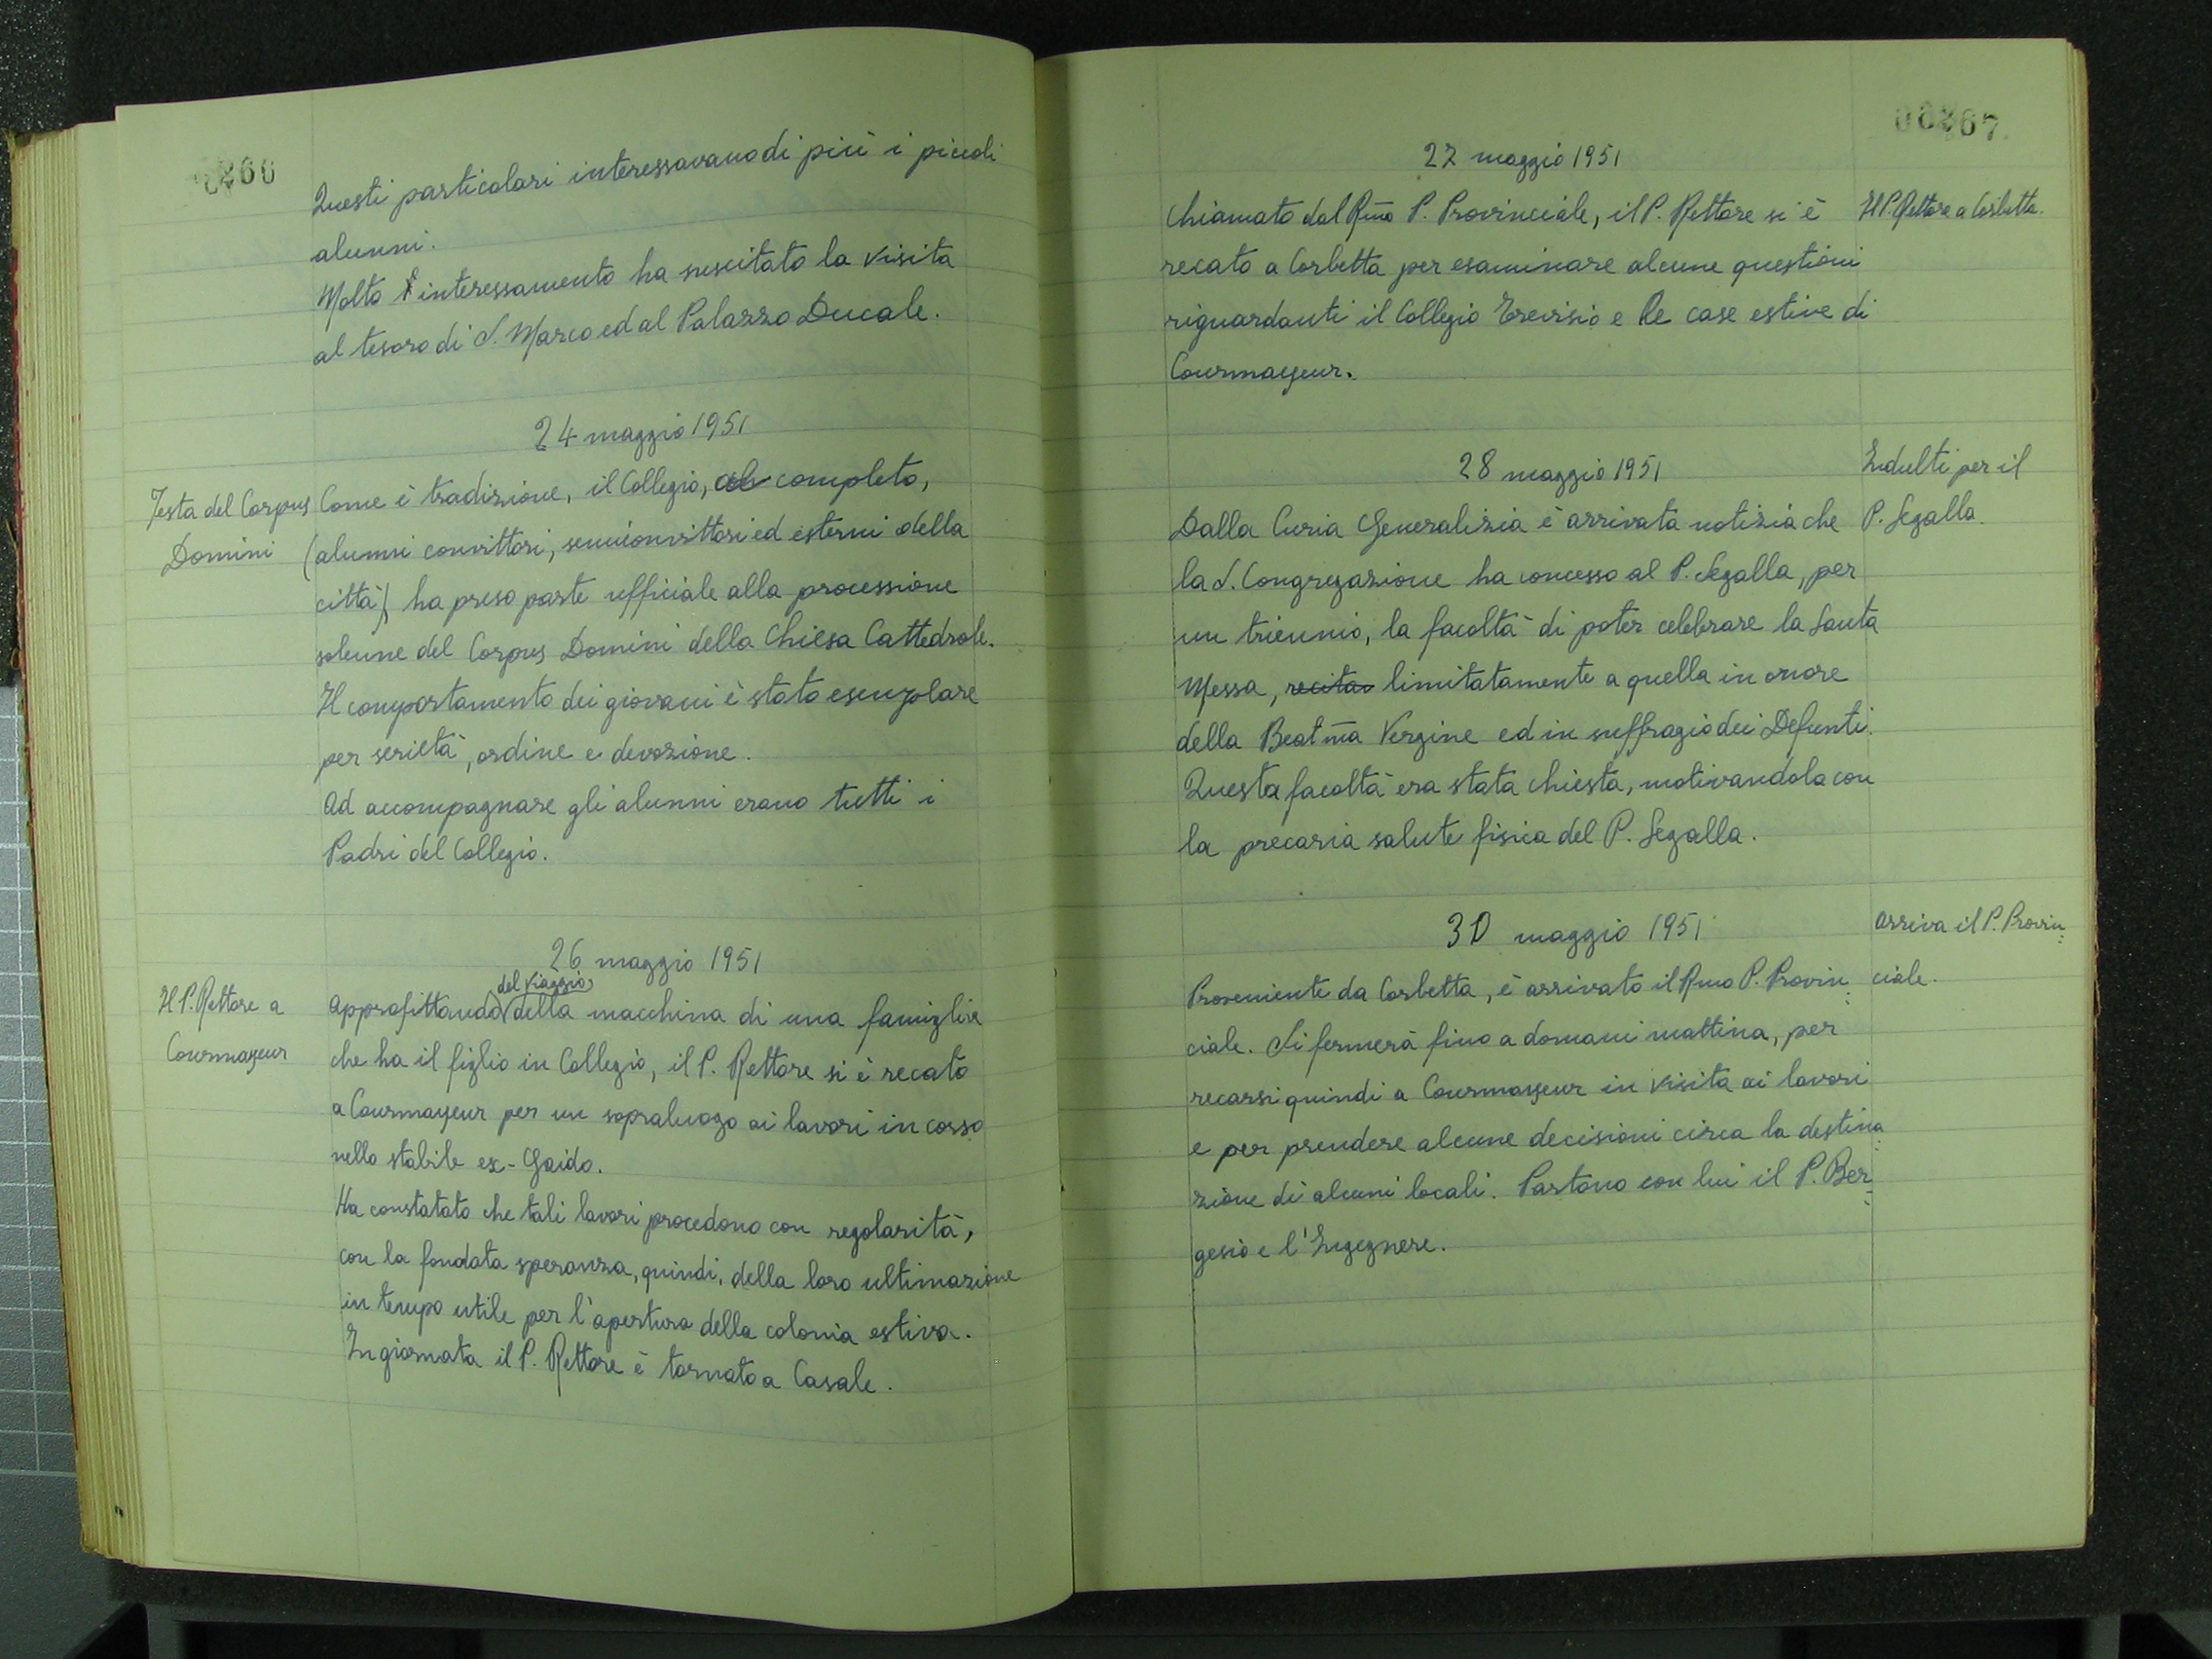 Questi particolari interessavano di più i piccoli
alunni.
Molto interessamento ha suscitato la visita
al tesoro di S. Marco ed al Palazzo Ducale.
24 maggio 1951
Festa del Corpus
Domini
Come è tradizione, il Collegio, al completo,
(alunni convittori, semiconvittori ed esterni della
città) ha preso parte ufficiale alla processione
solenne del Corpus Domini della Chiesa Cattedrale.
Il comportamento dei giovani è stato esemplare
per serietà, ordine e devozione.
Ad accompagnare gli alunni erano tutti i
Padri del Collegio.
26 maggio 1951
Il P. Rettore a
Courmayeur
del viaggio
Approfittando della macchina di una famiglia
che ha il figlio in Collegio, il P. Rettore si è recato
a Courmayeur per un sopraluogo ai lavori in corso
nello stabile ex-Gaido.
Ha constatato che tali lavori procedono con regolarità,
con la fondata speranza, quindi, della loro ultimazione
in tempo utile per l'apertura della colonia estiva.
In giornata il P. Rettore è tornato a Casale.
00267
27 maggio 1951
Il P. Rettore a Corbetta.
Chiamato dal Rmo P. Provinciale, il P. Rettore si è
recato a Corbetta per esaminare alcune questioni
riguardanti il Collegio Trevisio e le case estive di
Courmayeur.
28 maggio 1951
Indulti per il
P. Segalla.
Dalla Curia Generalizia è arrivata notizia che
la S. Congregazione ha concesso al P. Segalla, per
un triennio, la facoltà di poter celebrare la Santa
Messa, recitan limitatamente a quella in onore
della Beatma Vergine ed in suffragio dei Defunti.
Questa facoltà era stata chiesta, motivandola con
la precaria salute fisica del P. Segalla.
30 maggio 1951
Arriva il P. Provin=
ciale.
Proveniente da Corbetta, è arrivato il Rmo P. Provin=
ciale. Si fermerà fino a domani mattina, per
recarsi quindi a Courmayeur in visita ai lavori
e per prendere alcune decisioni circa la destina=
zione di alcuni locali. Partono con lui il P. Ber=
gesio e l'Ingegnere.